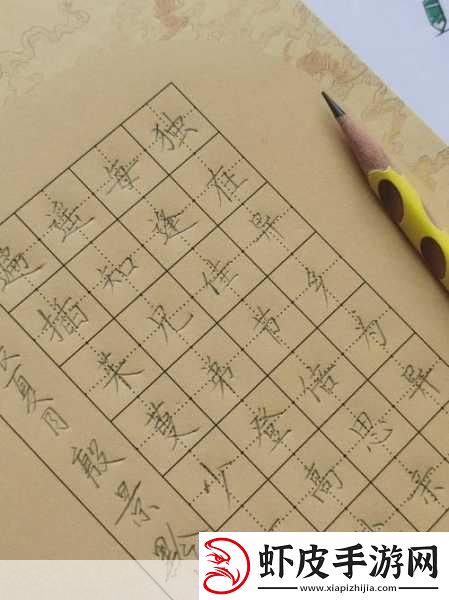 独在异乡为异
每逢佳节倍思亲
遥知兄弟登高
遍插茱萸少
夏月殷景
虾皮手游网
www.xiapizhijia.com